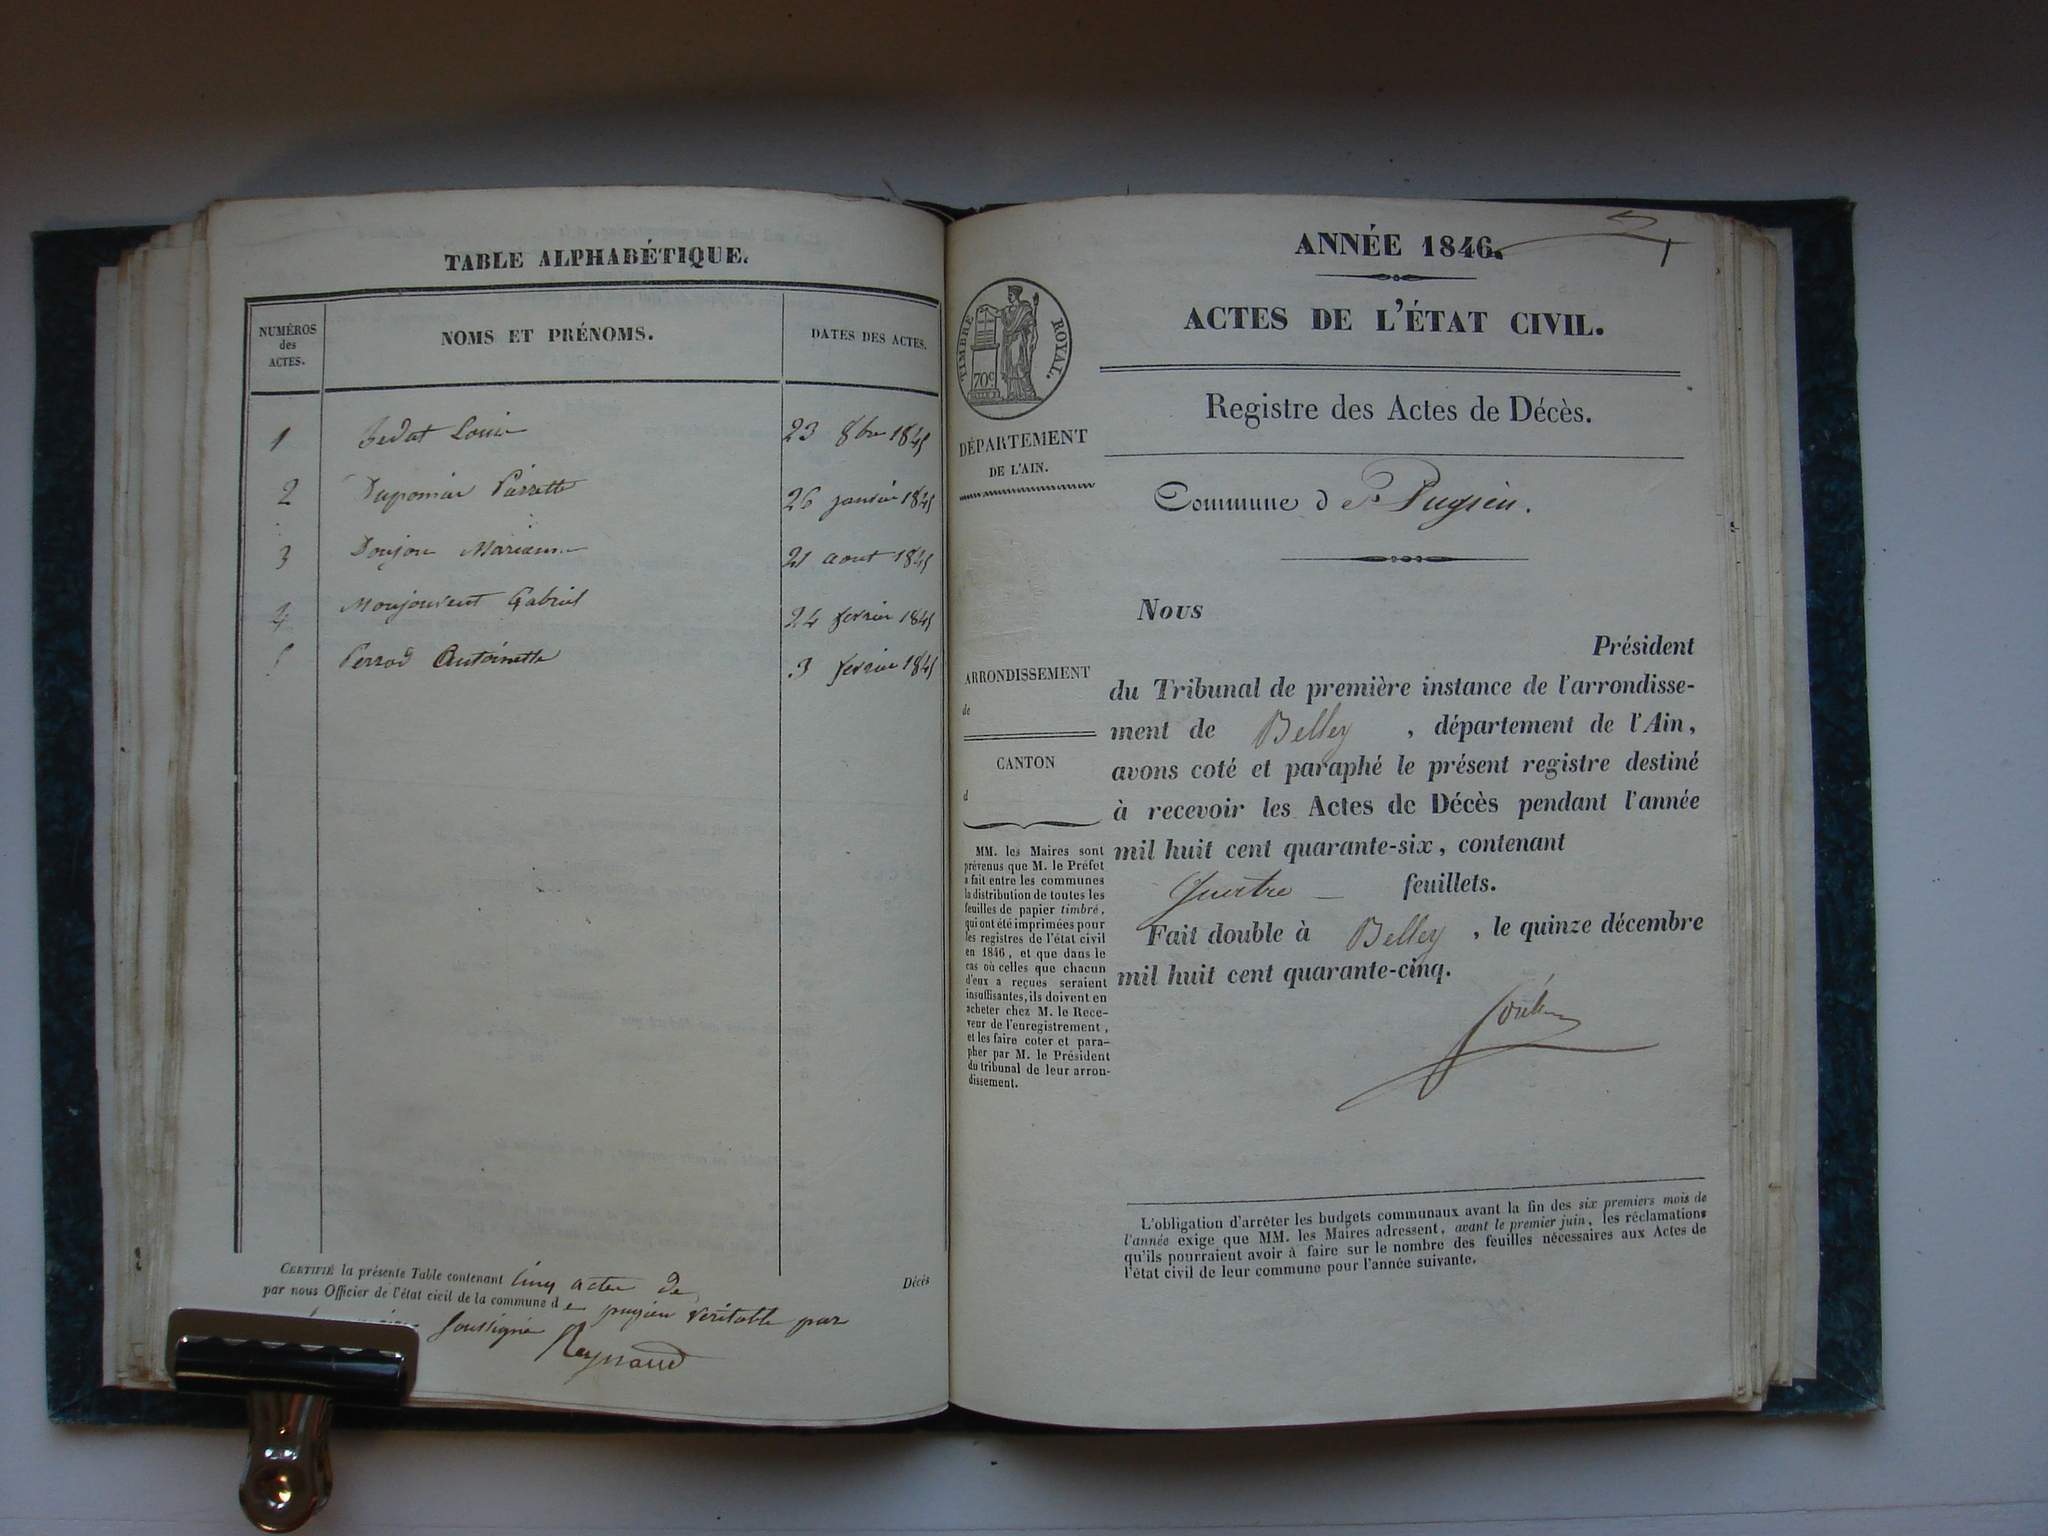 TABLE ALPHABÉTIQUE.
NUMÉROS
des
ACTES.
NOMS ET PRÉNOMS.
DATES DES ACTES.
1 Louis 23 8bre 1845
2 26 janvier 1845
3 Donjon Marianne 21 aout 1845
4 Monjouvent Gabriel 24 fevrier 1845
5 Perrod Antoinette 3 fevrier 1845
CERTIFIÉ la présente Table contenant Cinq actes de
Décès
par nous Officier de l'état civil de la commune de pugieu veritable par
soussigné Reynaud
ANNÉE 1846.
1
ACTES DE L'ÉTAT CIVIL.
TIMBRE ROYAL.
70c
Registre des Actes de Décès.
DÉPARTEMENT
DE L'AIN.
Commune de Pugieu.
ARRONDISSEMENT
de
CANTON
d
MM. les Maires sont
prévenus que M. le Préfet
a fait entre les communes
la distribution de toutes les
feuilles de papier timbré,
qui ont été imprimées pour
les registres de l'état civil
en 1846, et que dans le
cas où celles que chacun
d'eux a reçues seraient
insuffisantes, ils doivent en
acheter chez M. le Rece-
veur de l'enregistrement,
et les faire coter et para-
pher par M. le Président
du tribunal de leur arron-
dissement.
Nous
Président
du Tribunal de première instance de l'arrondisse-
ment de Belley, département de l'Ain,
avons coté et paraphé le présent registre destiné
à recevoir les Actes de Décès pendant l'année
mil huit cent quarante-six, contenant
quatre feuillets.
Fait double à Belley, le quinze décembre
mil huit cent quarante-cinq.
L'obligation d'arrêter les budgets communaux avant la fin des six premiers mois de
l'année exige que MM. les Maires adressent, avant le premier juin, les réclamations
qu'ils pourraient avoir à faire sur le nombre des feuilles nécessaires aux Actes de
l'état civil de leur commune pour l'année suivante.